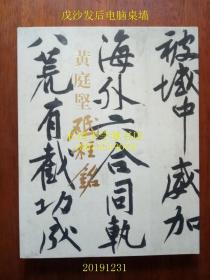 戊沙发后电脑桌墙
被域中威加
海外六合同軌
黃庭堅砥柱銘
八荒有截功成
20191231